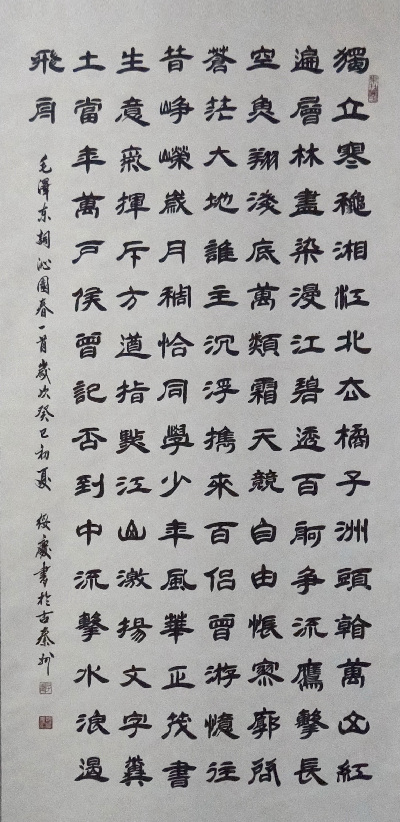 獨立寒穐湘江北去橘子洲頭看萬山紅
遍層林盡染漫江碧透百舸争流鷹擊長
空魚翔淺底萬類霜天競自由悵寥廓問
蒼茫大地誰主沉浮攜來百侣曾游憶往
昔崢嶸歲月稠恰同學少年風華正茂書
生意氣揮斥方遒指點江山激揚文字糞
土當年萬户侯曾記否到中流擊水浪遏
飛舟
毛澤東詞沁園春一首歲次癸巳初夏 綏慶書於古秦州